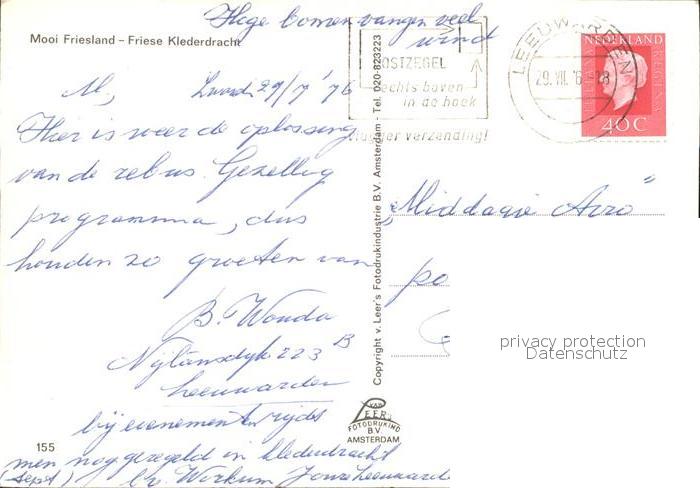 Hoge bomen vangen veel
wind
Mooi Friesland – Friese Klederdracht
M, Lwrd. 29/7 '76
Hier is weer de oplossing
van de rebus. Gezellig
programma, dus
houden zo groeten van
B. Wouda
Nijlansdyk 223 B
Leeuwarden
bij evenementen rijdt
men nog geregeld in klederdracht
(Sept) b.v. Workum Joure Leeuward
155
Copyright v. Leer's Fotodrukindustrie B.V. Amsterdam - Tel. 020-823223
VAN
LEER'S
FOTODRUKIND
B.V.
AMSTERDAM
POSTZEGEL
rechts boven
in de hoek
verzending!
LEEUWARDEN
29.VII.'6
NEDERLAND
JULIANA REGINA
40C
„Middagie Avro"
po
privacy protection
Datenschutz